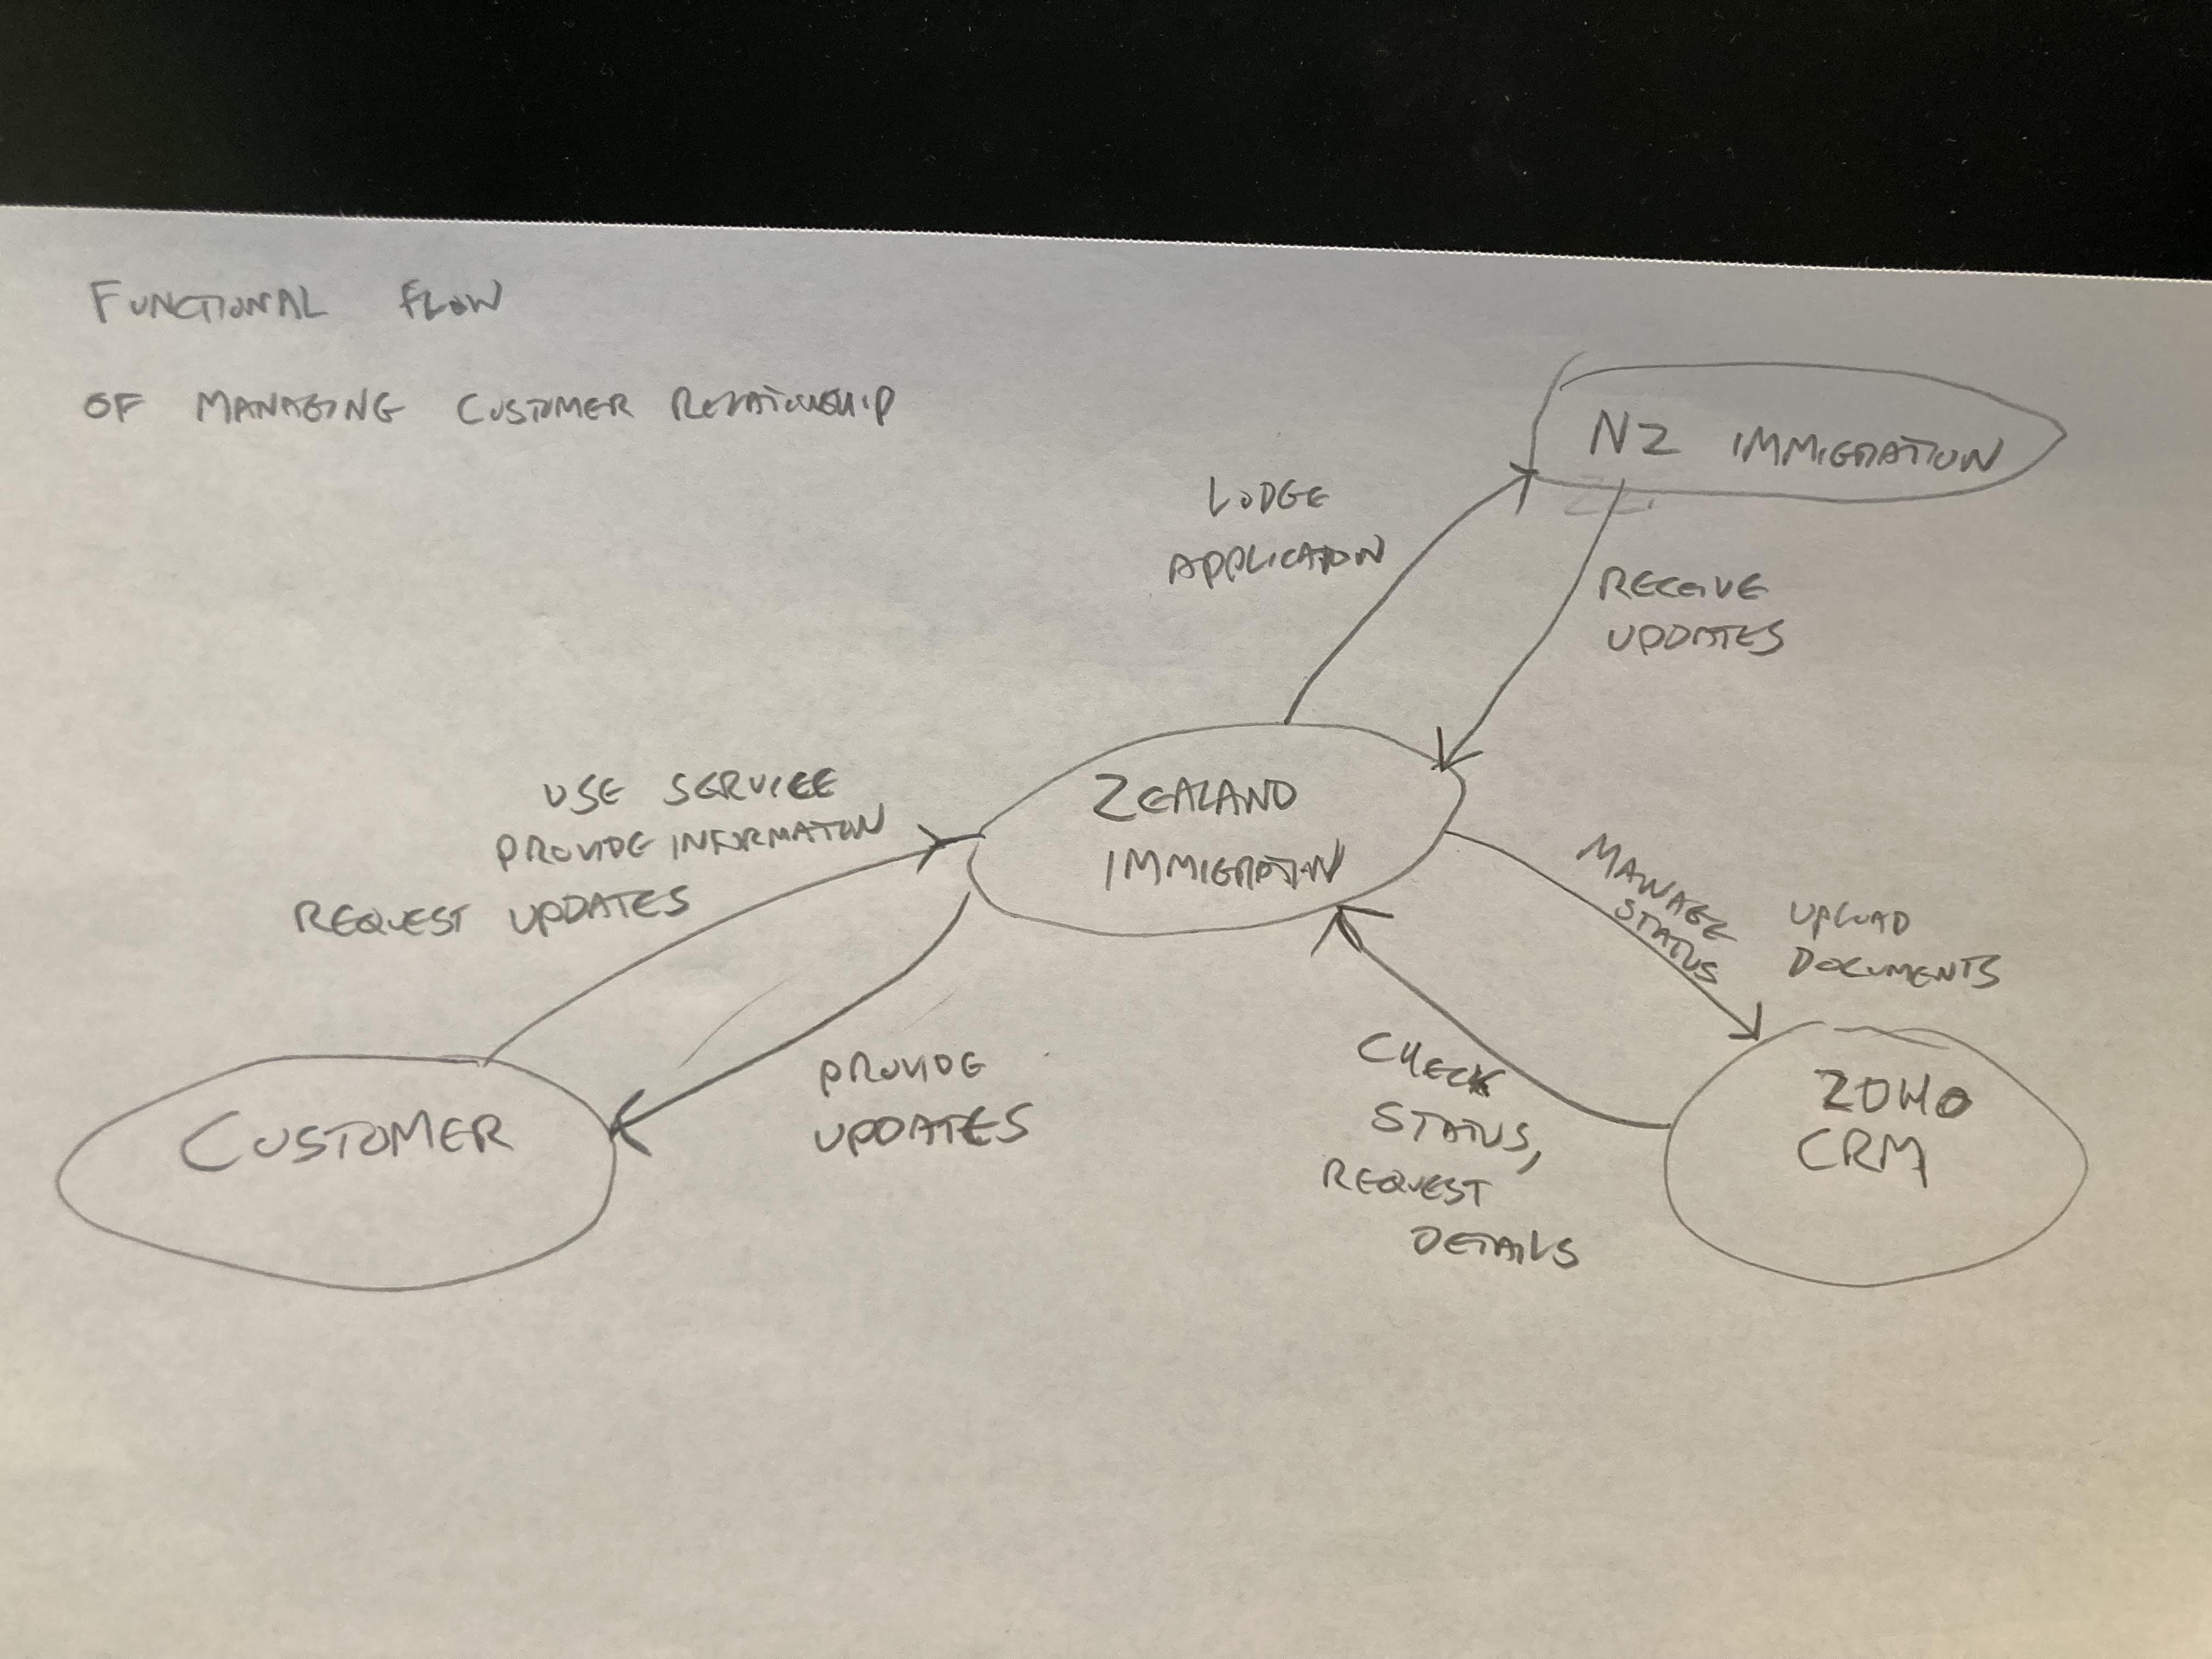 FUNCTIONAL FLOW
OF MANAGING CUSTOMER RELATIONSHIP
NZ IMMIGRATION
LODGE
APPLICATION
RECEIVE
UPDATES
ZEALAND
IMMIGRATION
USE SERVICE
PROVIDE INFORMATION
REQUEST UPDATES
MANAGE
STATUS
UPLOAD
DOCUMENTS
CUSTOMER
PROVIDE
UPDATES
CHECK
STATUS,
REQUEST
DETAILS
ZOHO
CRM